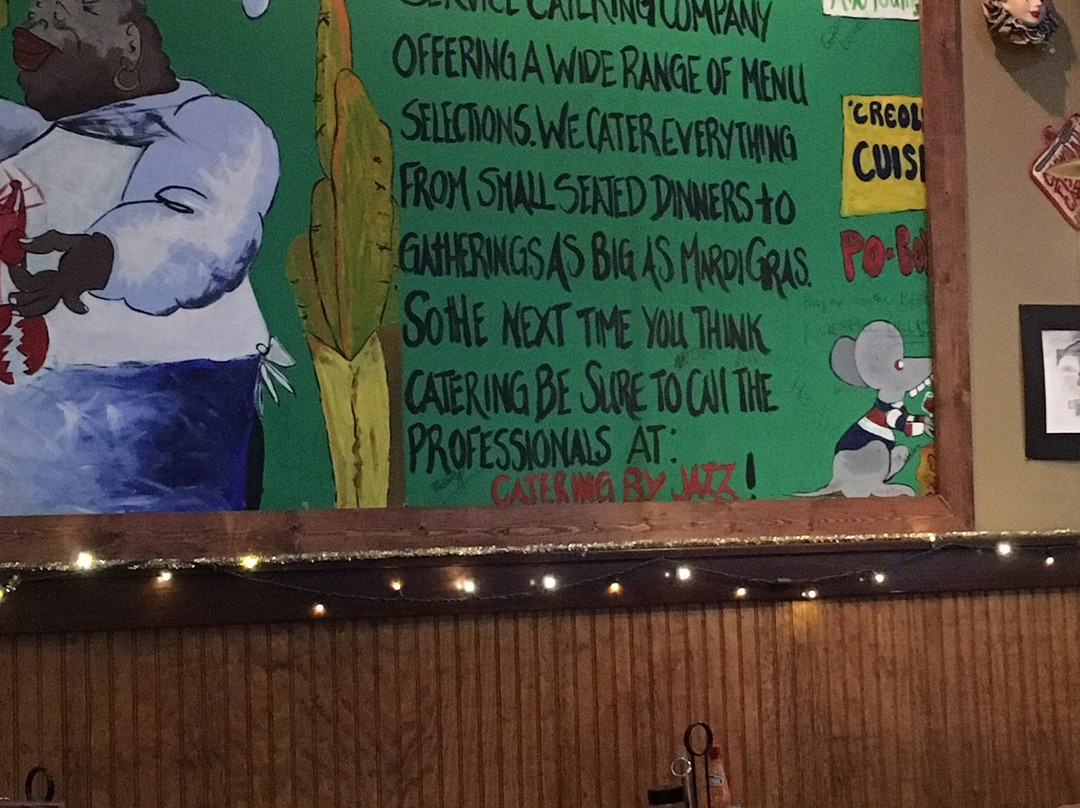 SERVICE CATERING COMPANY
OFFERING A WIDE RANGE OF MENU
SELECTIONS. WE CATER EVERYTHING
FROM SMALL SEATED DINNERS to
GATHERINGS AS BIG AS MARDI GRAS.
SO tHE NEXT TIME YOU THINK
CATERING BE SURE TO CAll THE
PROFESSIONALS AT:
CATERING BY JAZZ!
"CREOL
CUISI
PO-BO